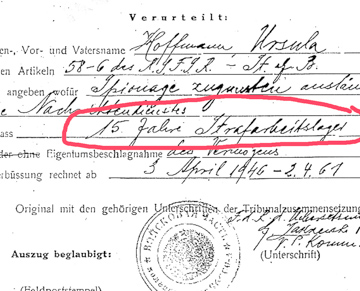 Verurteilt:
en-, Vor- und Vatersname Hoffmann Ursula
en Artikeln 58-6 des
angeben wofür Spionage zugunsten auslän
e Nachrichtendienstes
ass 15 Jahre Strafarbeitslager
der ohne Eigentumsbeschlagnahme des Vermögens
erbüssung rechnet ab 3 April 1946 - 2.4.61
Original mit den gehörigen Unterschriften der Tribunalzusammensetzung
Auszug beglaubigt:
(Unterschrift)
(Feldpoststempel)